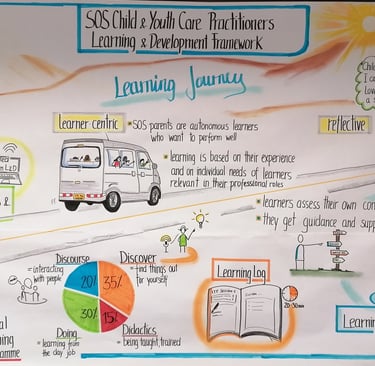 SOS Child & Youth Care Practitioners
Learning & Development Framework
Learning Journey
learner-centric
• SOS parents are autonomous learners
who want to perform well
• learning is based on their experience
and on individual needs of learners
relevant in their professional roles
reflective
• learners assess their own
• they get guidance and
Discourse
= interacting
with people
20%
35%
30%
15%
Discover
= find things out
for yourself
Doing
= learning from
the day job
Didactics
= being taught, trained
Learning Log
20-30min
Learnin